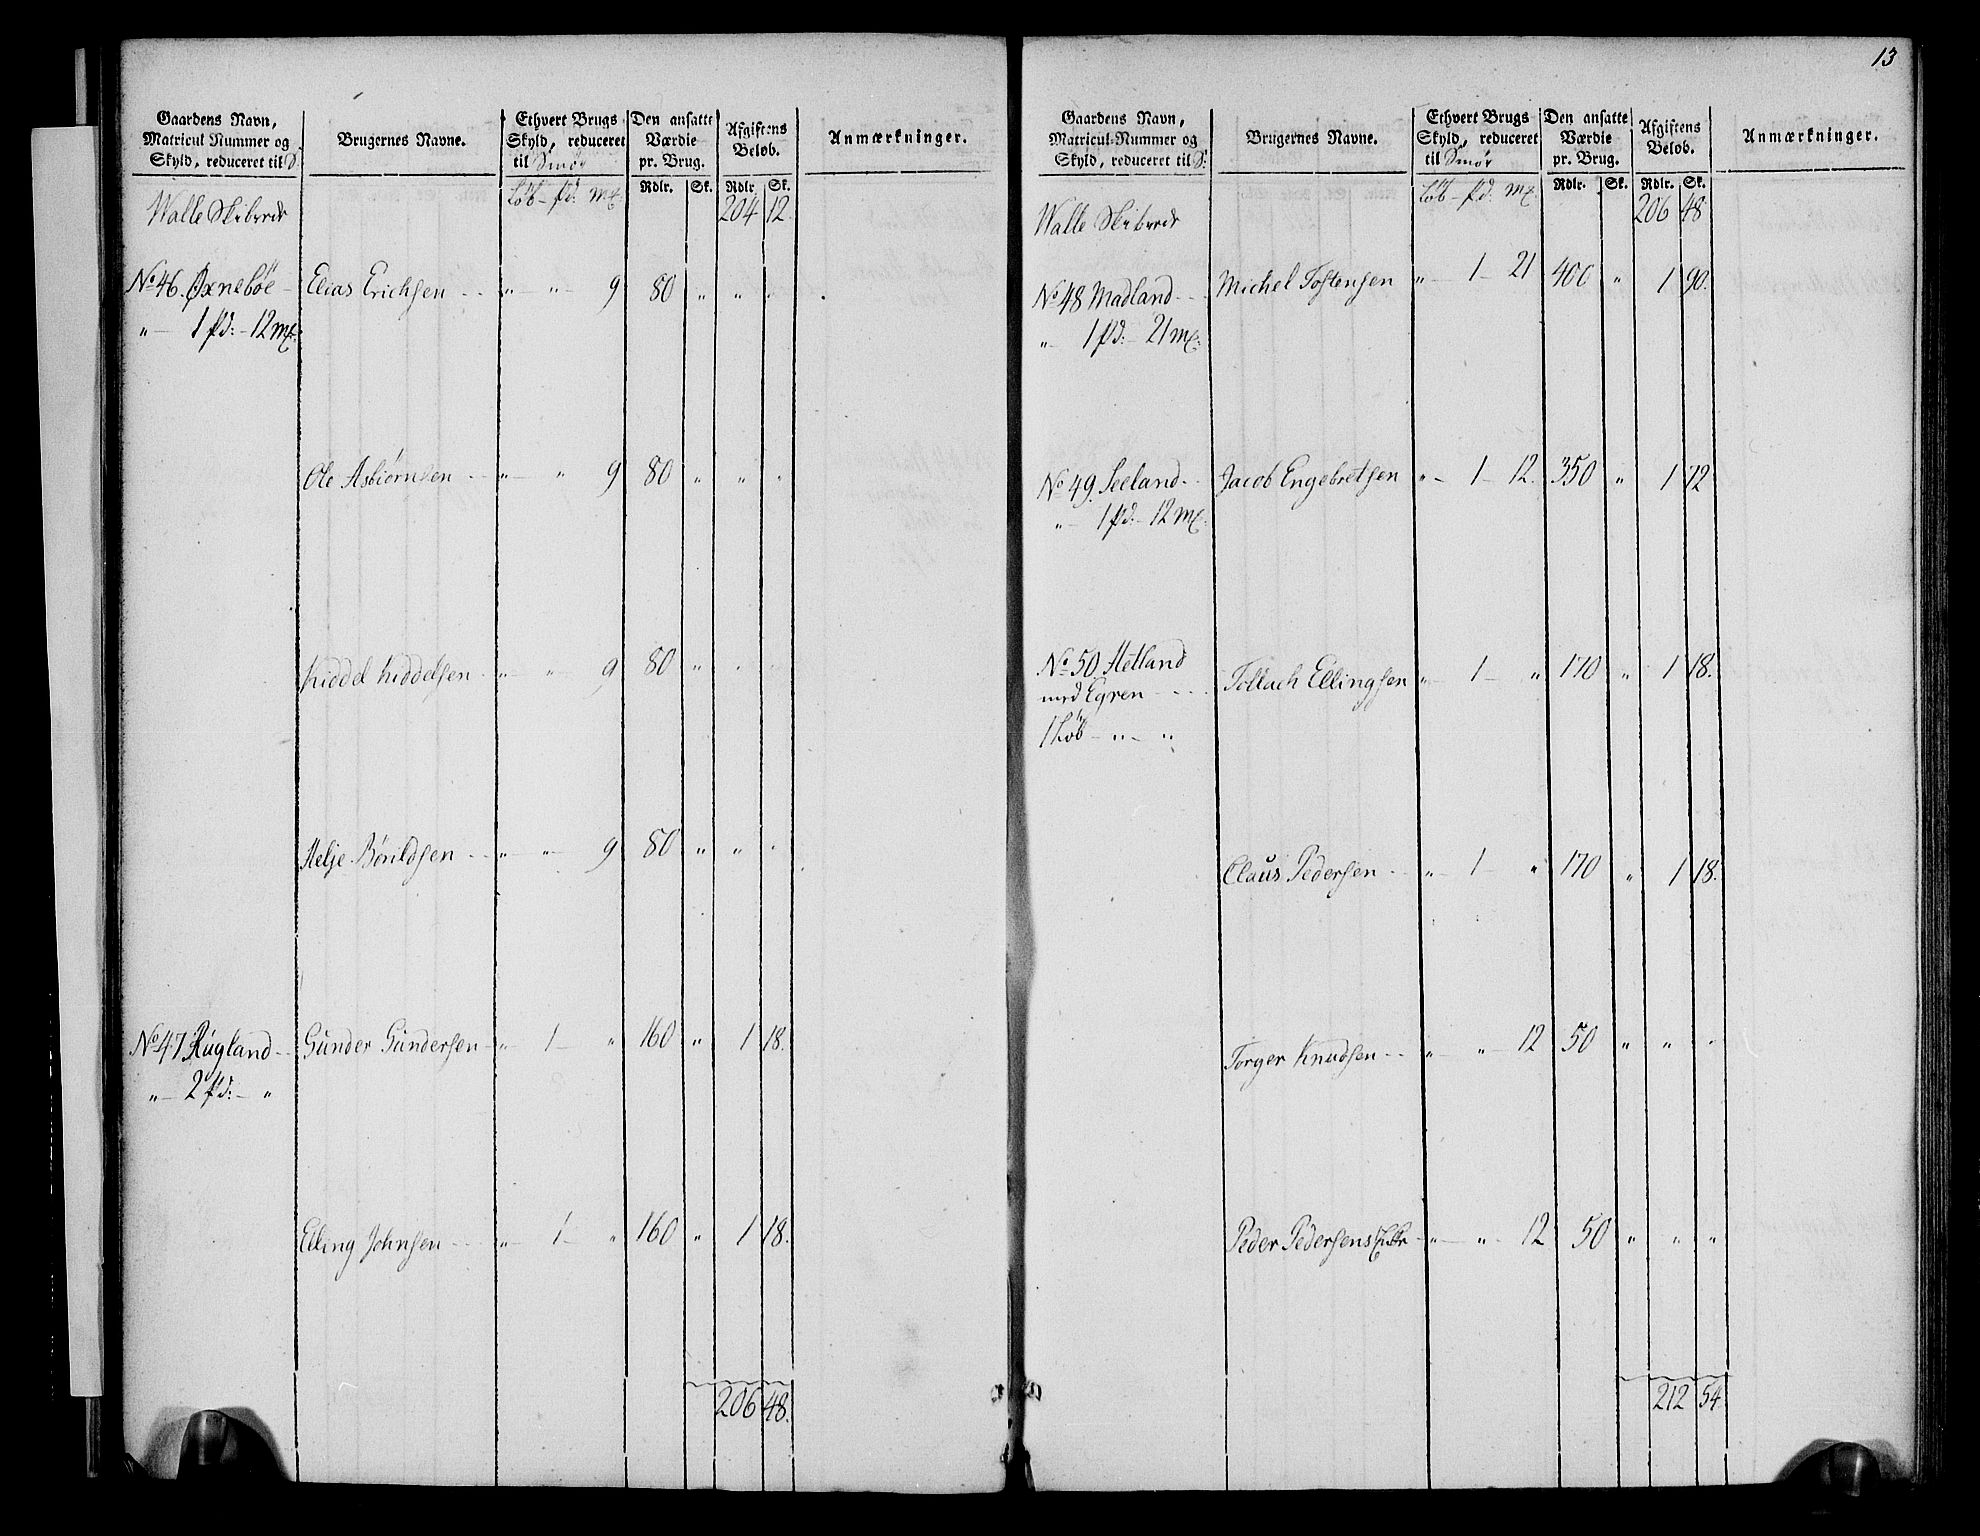 Gaardens Navn,
Matricul Nummer og
Skyld, reduceret til S.
Brugernes Navne.
Ethvert Brugs
Skyld, reduceret
til Smør
Den ansatte
Værdie
pr. Brug.
Afgiftens
Beløb.
Anmærkninger.
Löb - pd: mk:
Rdlr. Sk. Rdlr. Sk.
Walle Skibrede 204 12.
No 46. Øxneböe - Elias Erichsen - - „ - „ - 9 80 „ „ „
„ - 1 pd: - 12 mk:
Ole Asbiørnsen - - „ - „ - 9 80 „ „ „
Kiddel Kiddelsen - „ - „ - 9 80 „ „ „
Helje Börildsen - - „ - „ - 9 80 „ „ „
No 47 Rugland - - Gunder Gundersen - „ - 1 - „ 160 „ 1 18.
„ - 2 pd: - „
Elling Johnsen - - „ - 1 - „ 160 „ 1 18.
206 48.
13
Gaardens Navn,
Matricul-Nummer og
Skyld, reduceret til S:
Brugernes Navne.
Ethvert Brugs
Skyld, reduceret
til Smør
Den ansatte
Værdie
pr. Brug.
Afgiftens
Beløb.
Anmærkninger.
Löb - pd: mk:
Rdlr. Sk. Rdlr. Sk.
Walle Skibrede 206 48
No 48 Madland - - Michel Tostensen „ - 1 - 21 400 „ 1 90.
„ - 1 pd: - 21 mk:
No 49. Seeland - - Jacob Engebretsen „ - 1 - 12. 350 „ 1 72
„ - 1 pd: - 12 mk:
No 50 Hetland
med Egren - - - Tollach Ellingsen „ - 1 - „ 170 „ 1 18.
1 Löb - „ - „
Claus Pedersen - - „ - 1 - „ 170 „ 1 18.
Torger Knudsen - - „ - „ - 12 50 „ „ „
Peder Pedersens - „ - „ - 12 50 „ „ „
212 54.